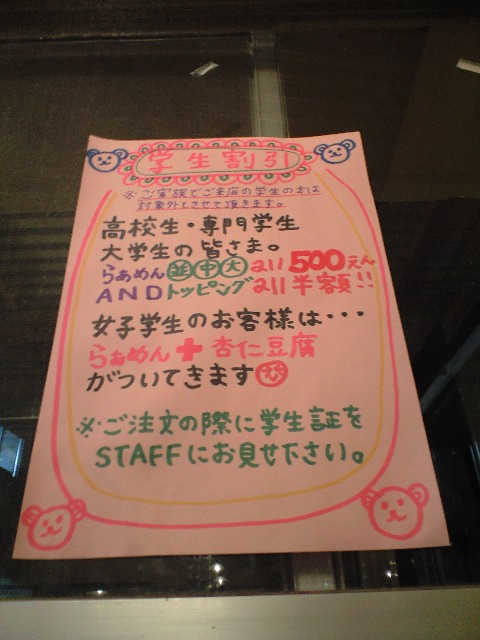 学生割引
※ご家族でご来店の学生の方は
対象外とさせて頂きます。
高校生・専門学生
大学生の皆さま。
らぁめん 並 中 大 all 500えん
ANDトッピング all 半額!!
女子学生のお客様は・・・
らぁめん+杏仁豆腐
がついてきます
※ご注文の際に学生証を
STAFFにお見せ下さい。